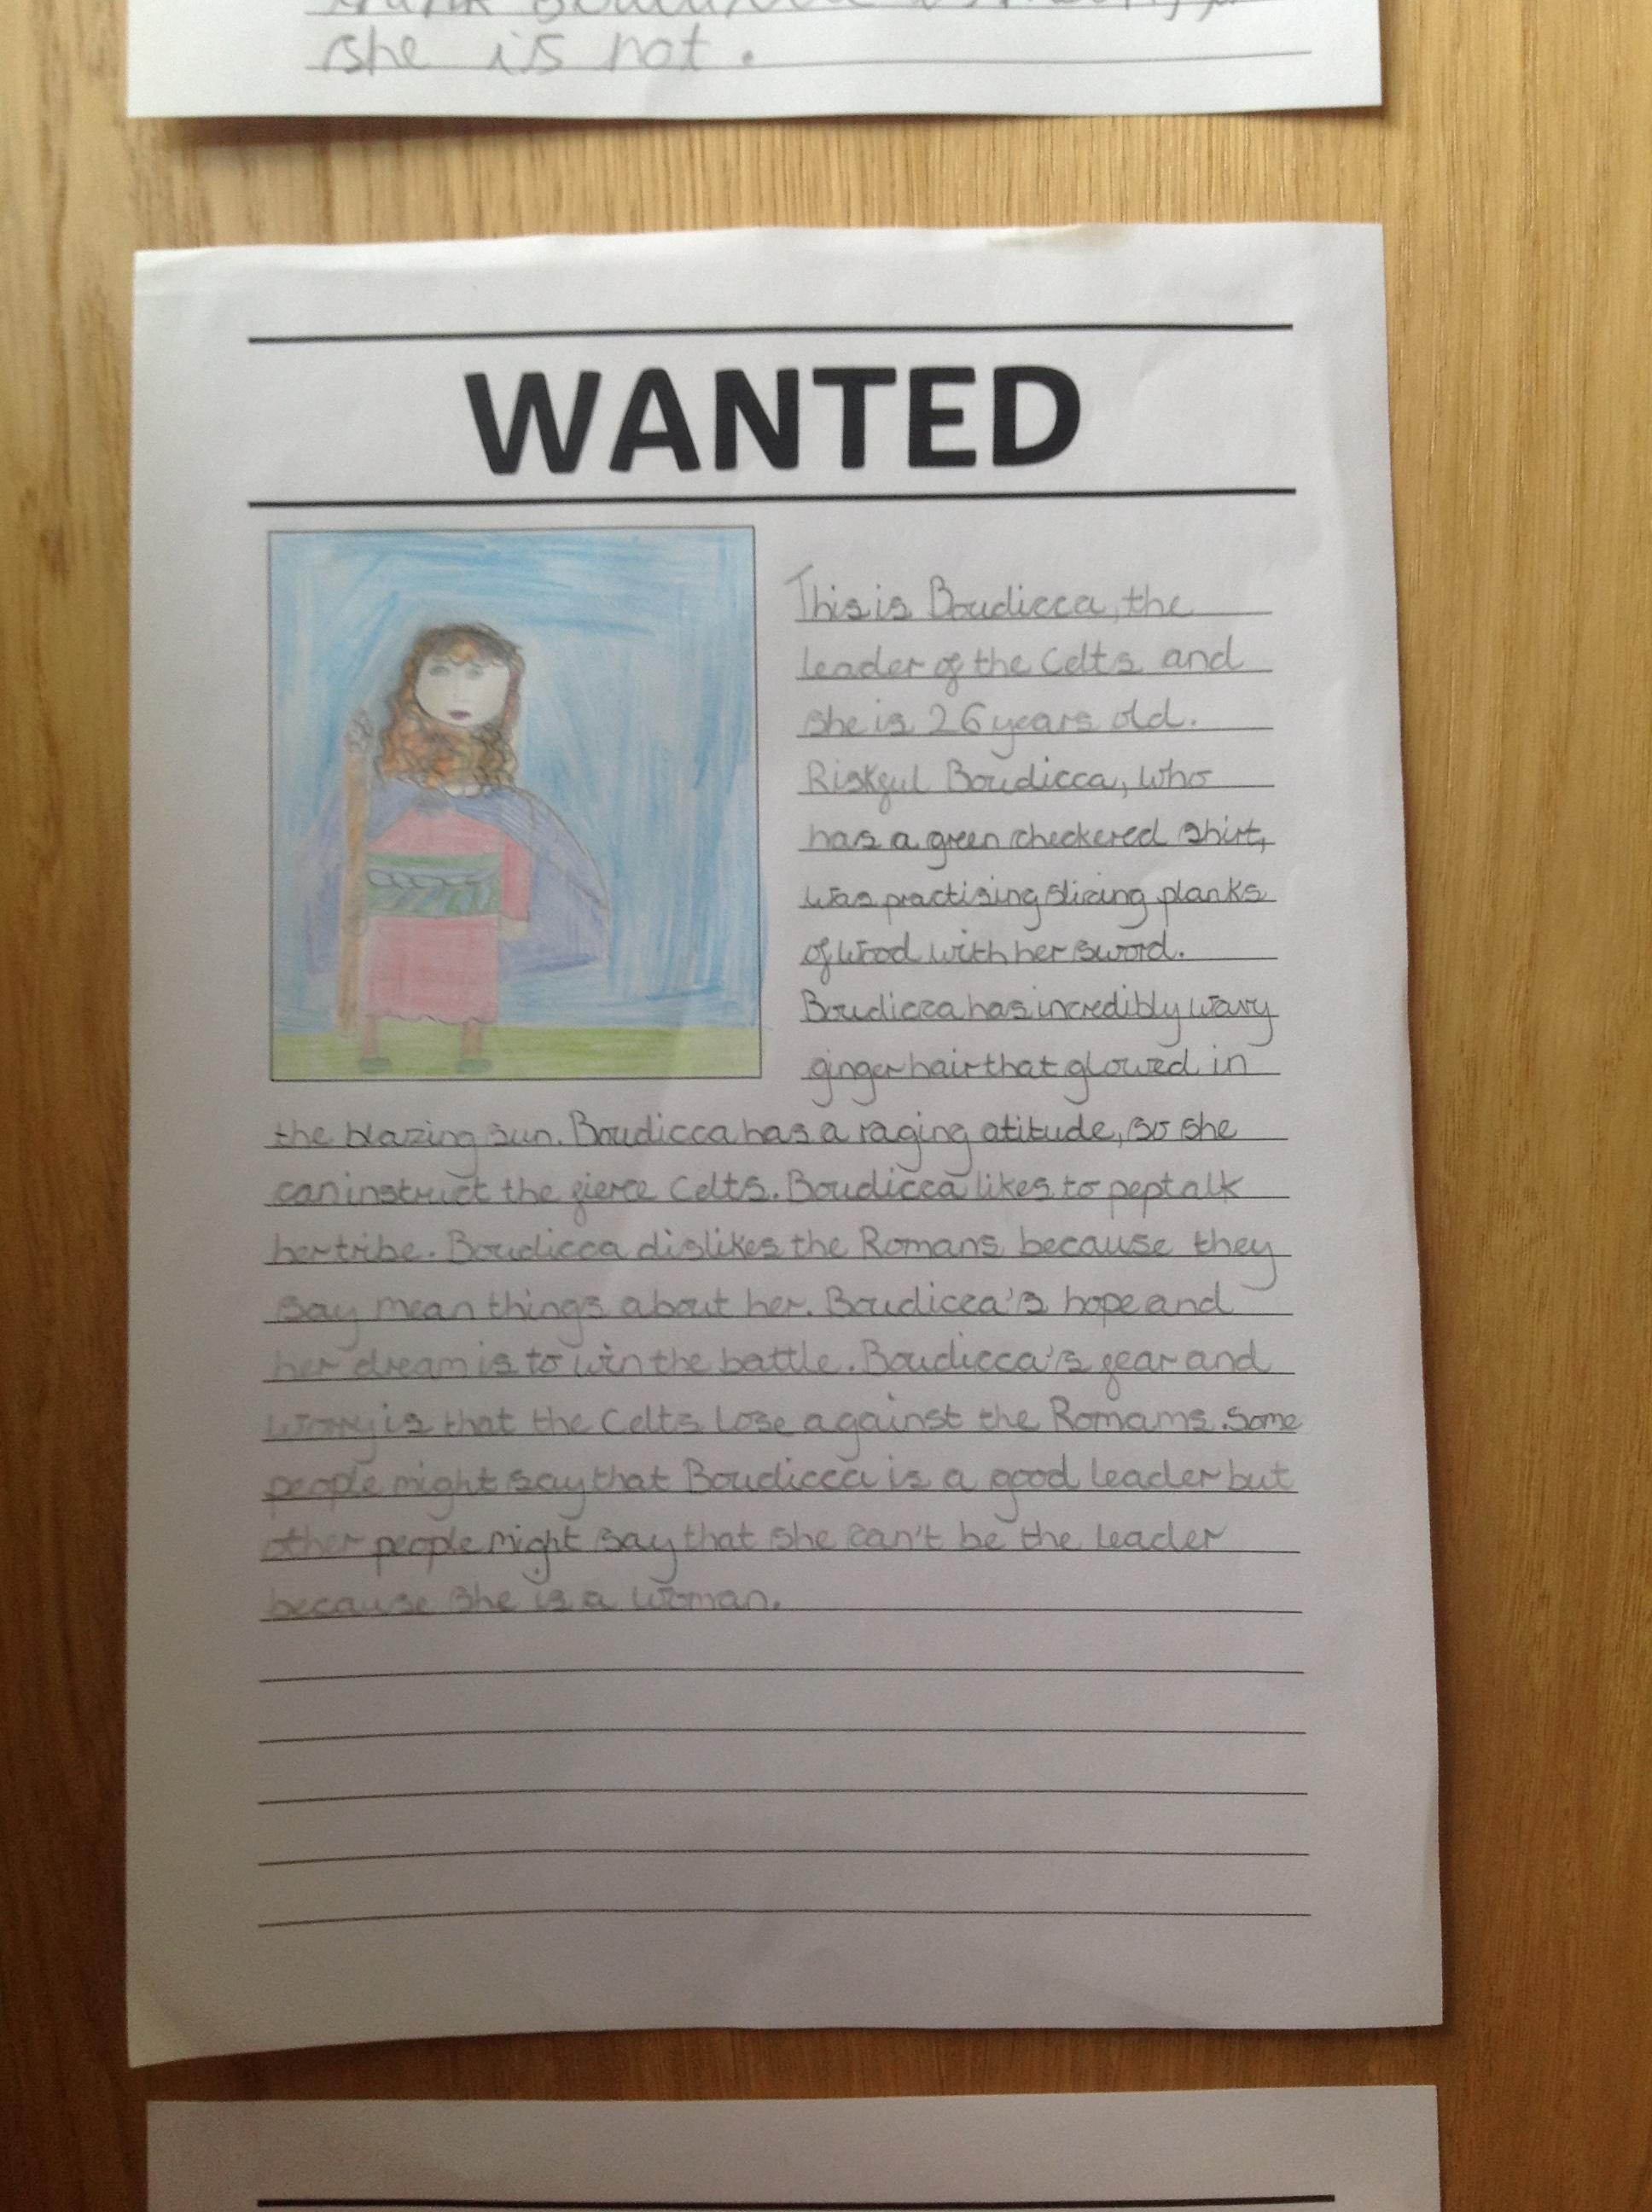 she is not.
WANTED
This is Boudicca, the
leader of the Celts and
she is 26 years old.
Riskful Boudicca, who
has a green checkered shirt,
was practising slicing planks
of wood with her sword.
Boudicca has incredibly wavy
ginger hair that glowed in
the blazing sun. Boudicca has a raging atitude, so she
can instruct the fierce Celts. Boudicca likes to pep talk
her tribe. Boudicca dislikes the Romans because they
say mean things about her. Boudicca's hope and
her dream is to win the battle. Boudicca's fear and
worry is that the Celts lose against the Romams. Some
people might say that Boudicca is a good leader but
other people might say that she can't be the leader
because she is a woman.